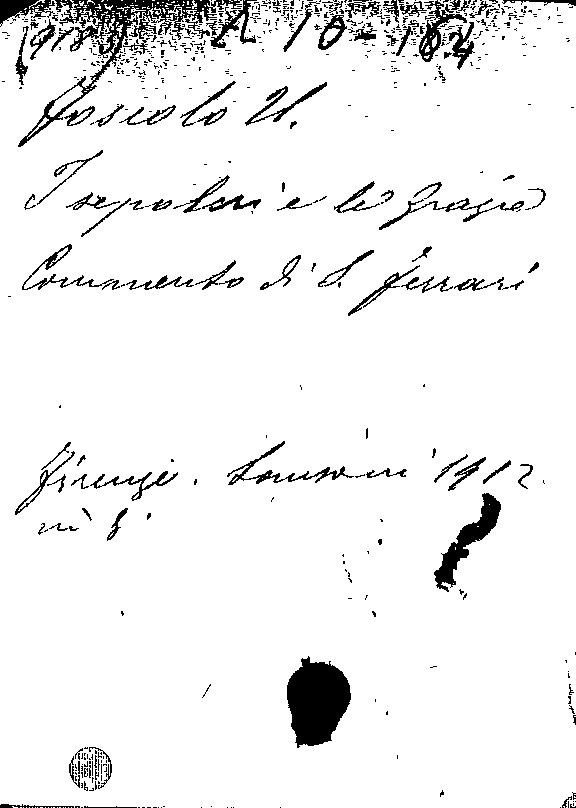 A 10-184
Foscolo U.
I sepolcri e le grazie
Commento di S. Ferrari
Firenze. Sansoni 1912
in 8°